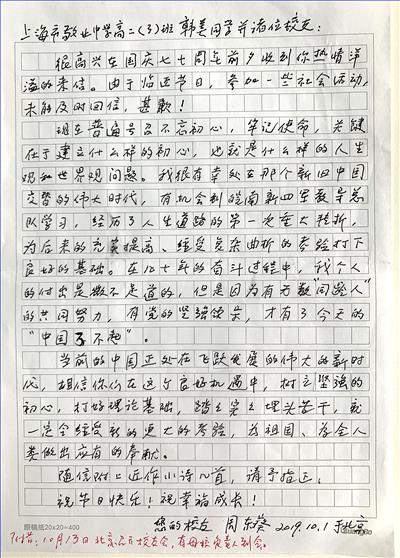 上海市敬业中学高二(3)班 韩美同学并诸位校友:
很高兴在国庆七十周年前夕收到你热情洋
溢的来信。由于临近节日,参加一些社会活动,
未能及时回信,甚歉!
现在普遍号召不忘初心,牢记使命,关键
在于建立什么样的初心,也就是什么样的人生
观和世界观问题。我很有幸处在那个新旧中国
交替的伟大时代,有机会到皖南新四军教导总
队学习,经历了人生道路的第一次重大转折,
为后来的充实提高、经受复杂曲折的考验打下
良好的基础。在几十年的奋斗过程中,我个人
的付出是微不足道的,但是因为有万万“同路人”
的共同努力,有党的坚强领导,才有了今天的
“中国了不起”。
当前的中国正处在飞跃发展的伟大的新时
代,相信你们在这个良好机遇中,树立坚强的
初心,打好理论基础,踏踏实实埋头苦干,就
一定会经受新的更大的考验,为祖国、为全人
类做出应有的奉献。
随信附上近作小诗几首,请予指正。
祝节日快乐!祝幸福成长!
您的校友 周 2019.10.1 于北京
眼稿纸20x20=400
附告:10月13日北京召开校友会,有母校党委人到会。